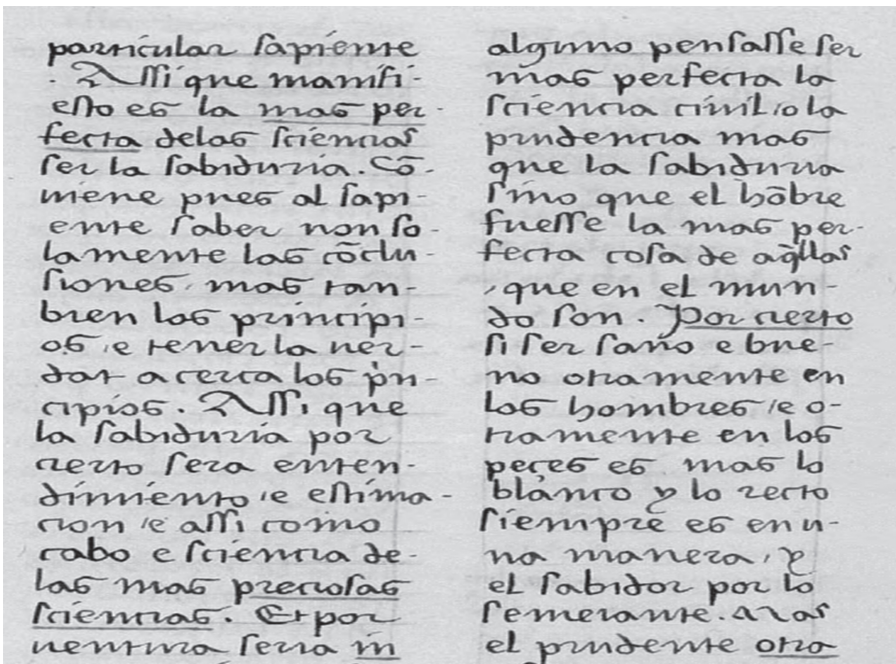 particular sapiente
. Assi que manifi-
esto es la mas per-
fecta delas sciencias
ser la sabiduria. Cõ-
uiene pues al sapi-
ente saber non so-
lamente las cõclu-
siones, mas tan-
bien los principi-
os, e tener la uer-
dat acerca los p̀n-
cipios. Assi que
la sabiduria por
cierto sera enten-
dimiento, e estima-
cion, e assi como
cabo e sciencia de-
las mas preciosas
sciencias. Et por
uentura seria in
alguno pensasse ser
mas perfecta la
sciencia ciuil, o la
prudencia mas
que la sabiduria
sino que el hõbre
fuesse la mas per-
fecta cosa de aq̃llas
, que en el mun-
do son. Por cierto
si ser sano e bue-
no otramente en
los hombres, e o-
tramente en los
peçes es mas lo
blanco y lo recto
siempre es en u-
na manera, y
el sabidor por lo
semeiante. Mas
el prudente otra